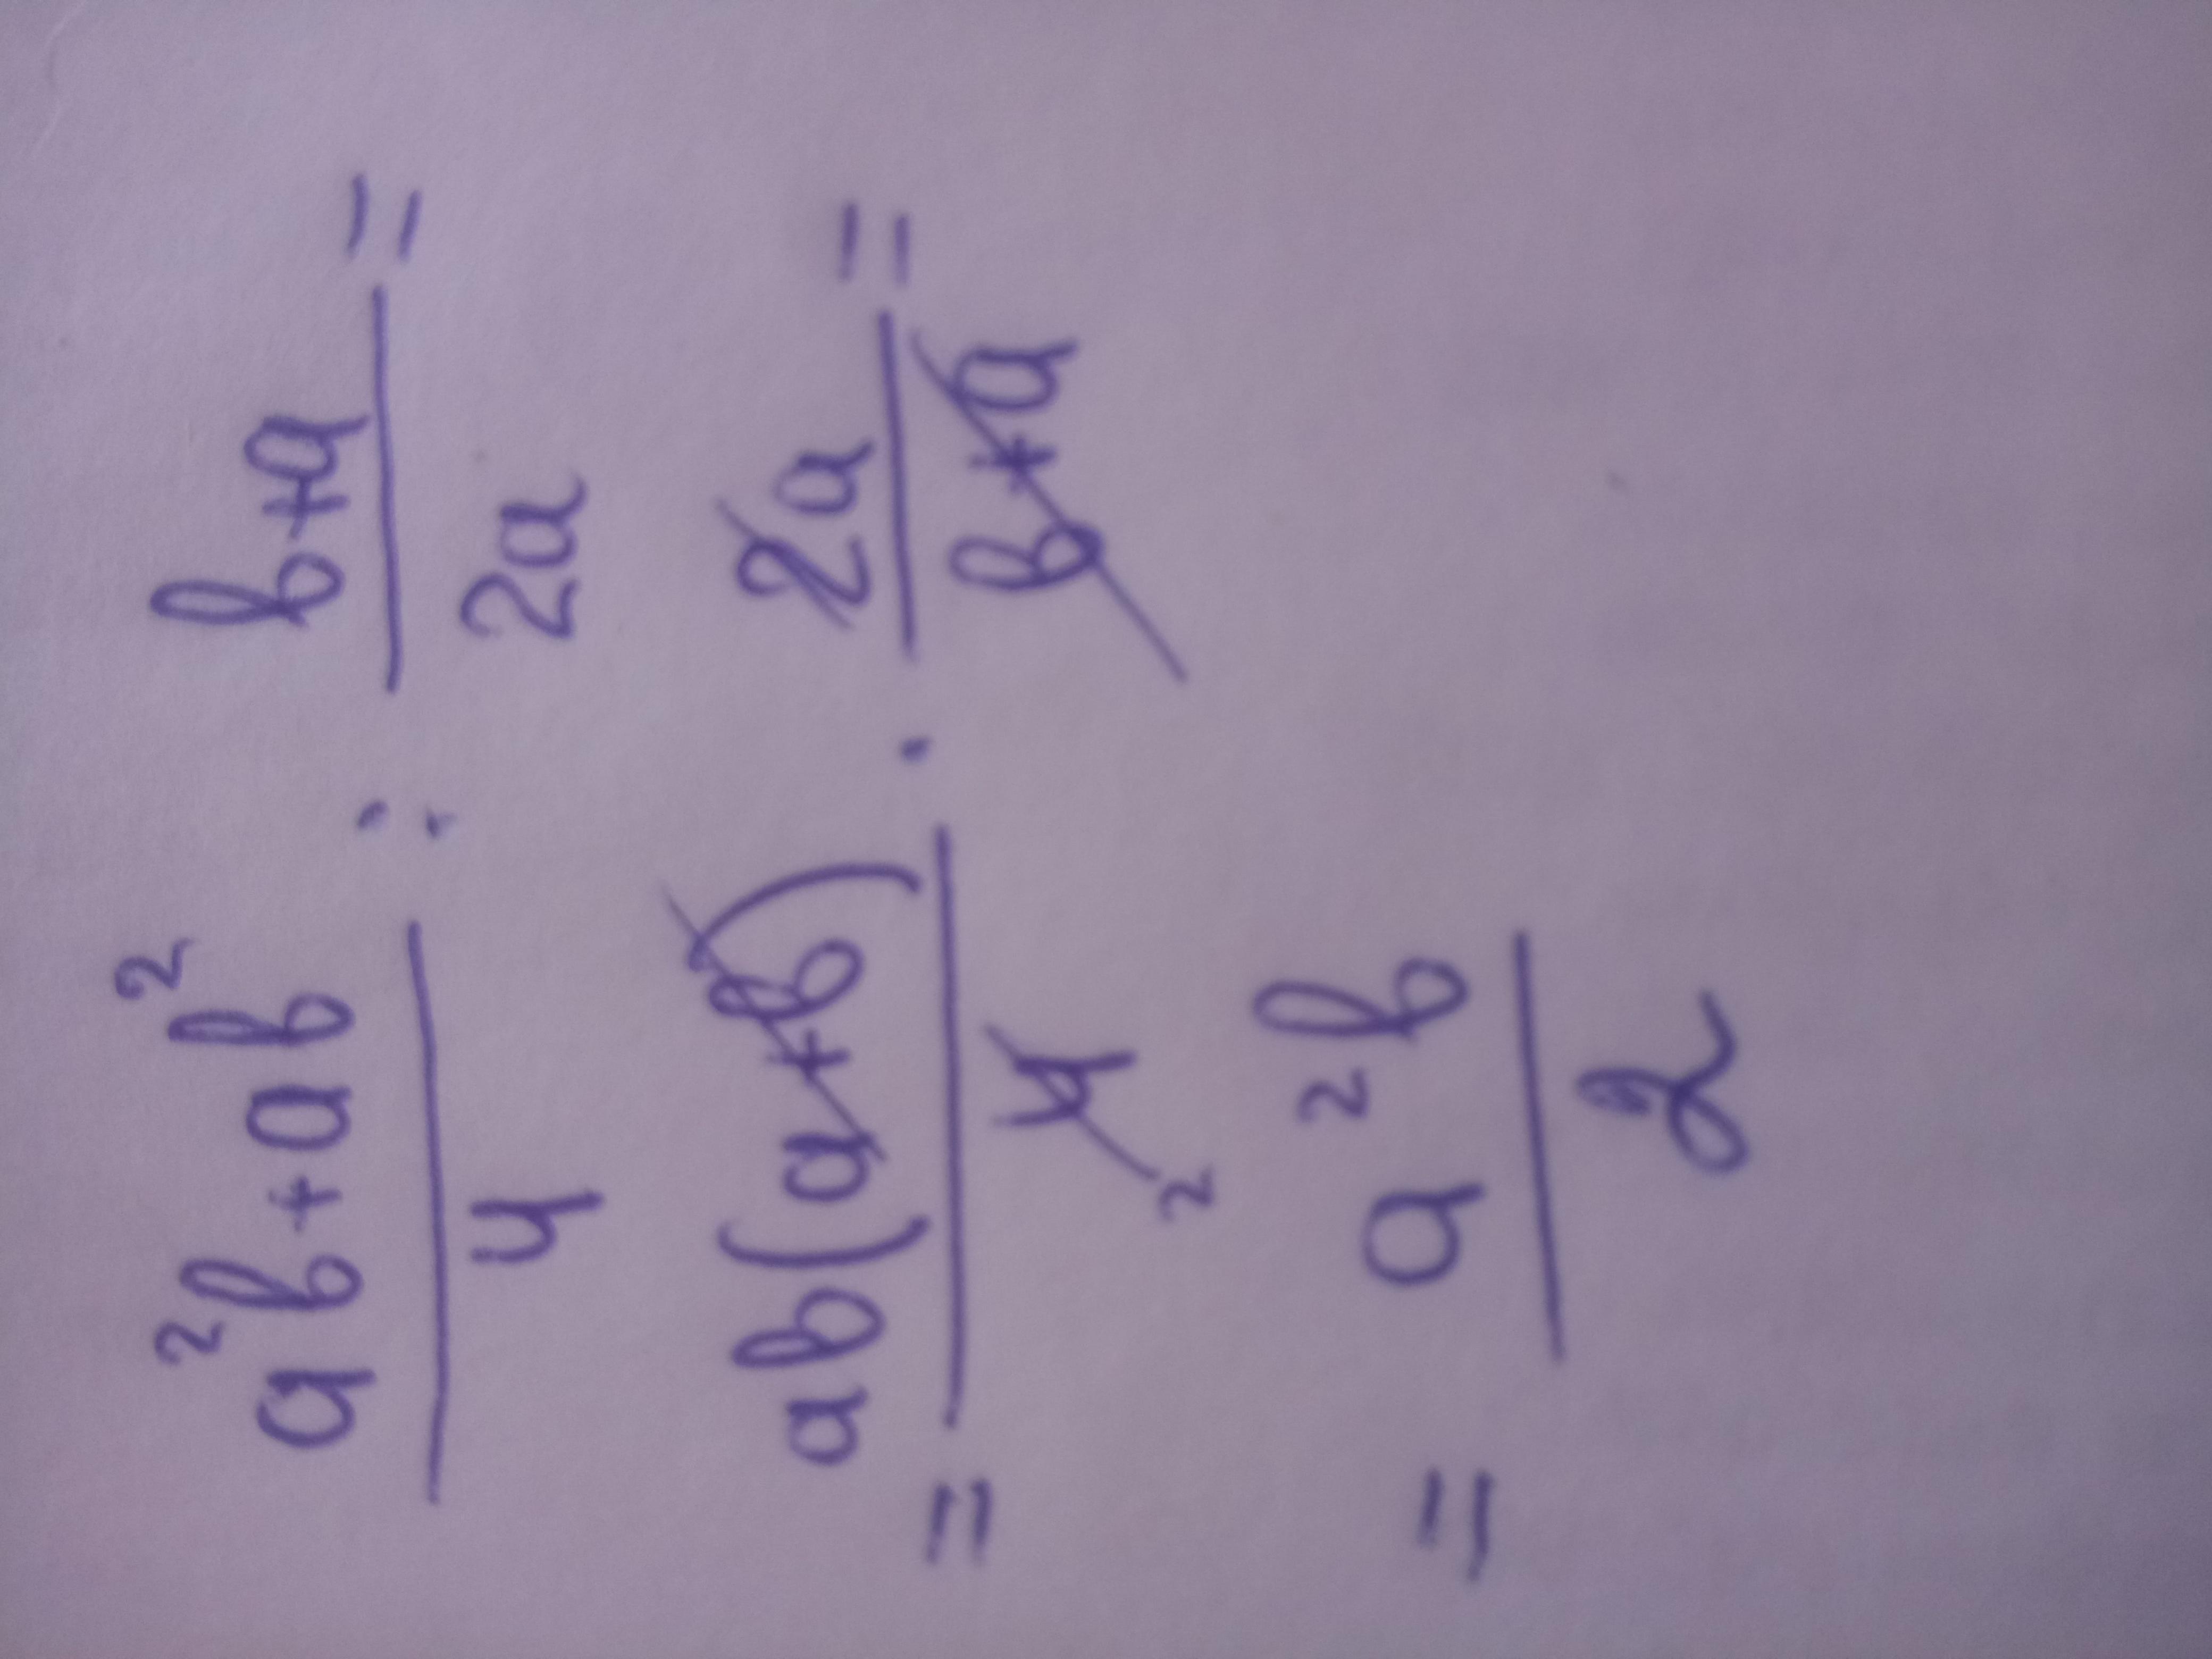 \frac{a^2b+ab^2}{4} : \frac{b+a}{2a} =
= \frac{ab(\cancel{a+b})}{\cancel{4}_2} \cdot \frac{\cancel{2}a}{\cancel{b+a}} =
= \frac{a^2b}{2}